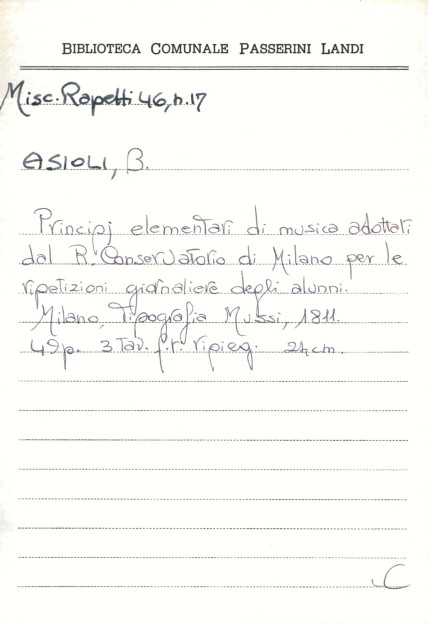 BIBLIOTECA COMUNALE PASSERINI LANDI
Misc. Rapetti 46, n. 17
ASIOLI, B.
Principj elementari di musica adottati
dal R. Conservatorio di Milano per le
ripetizioni giornaliere degli alunni.
Milano, Tipografia Mussi, 1811.
49p. 3 Tav. f.t. ripieg. 24cm.
C